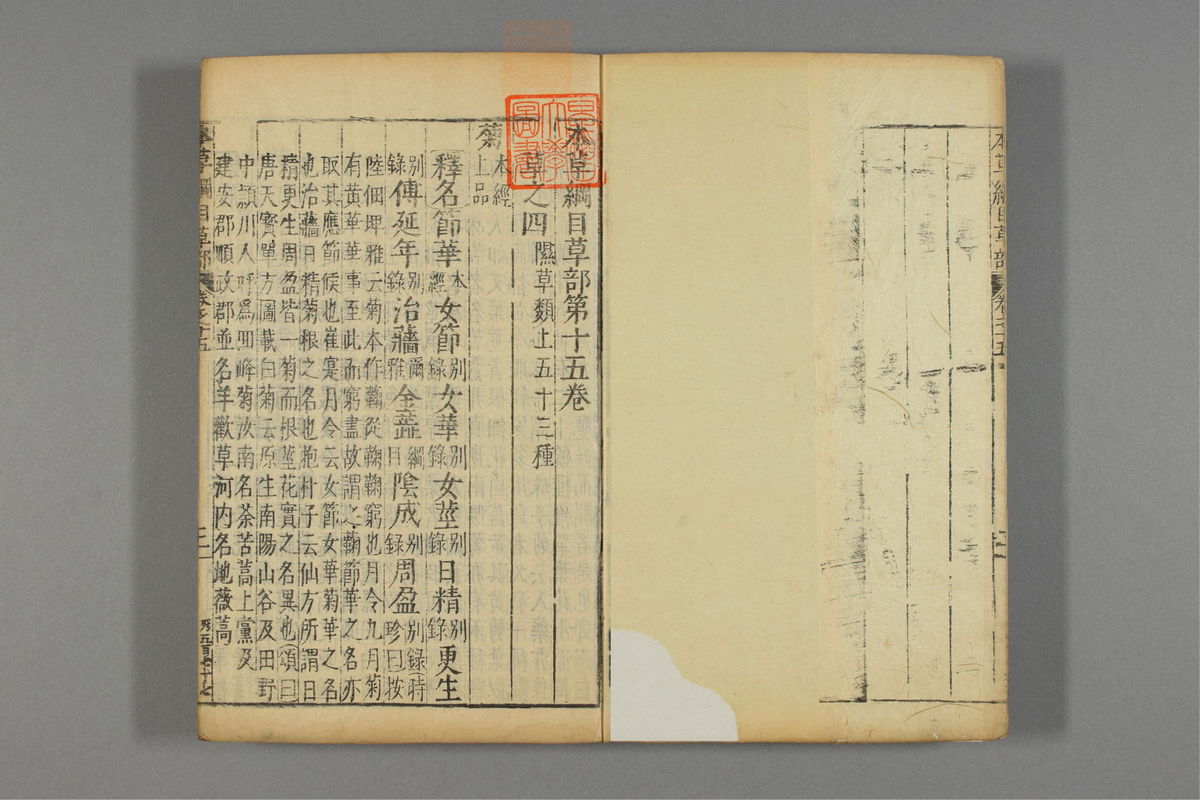 本草綱目草部第十五卷
草之四 隰草類上五十三種
菊 本經上品
釋名節華本經女節別錄女華別錄女莖別錄日精別錄更生
別錄傅延年別錄治蘠爾雅金蕋綱目陰成別錄周盈別錄時珍曰按
陸佃埤雅云菊本作蘜從鞠鞠窮也月令九月菊
有黃華華事至此而窮盡故謂之蘜節華之名亦
取其應節候也崔寔月令云女節女華菊華之名
也治蘠日精菊根之名也抱朴子云仙方所謂日
精更生周盈皆一菊而根莖花實之名異也頌曰
唐天寶單方圖載白菊云原生南陽山谷及田野
中潁川人呼為回峰菊汝南名茶苦蒿上黨及
建安郡順政郡並名羊歡草河內名地薇蒿
本草綱目草部 卷之十五
本草綱目草部 卷之十五